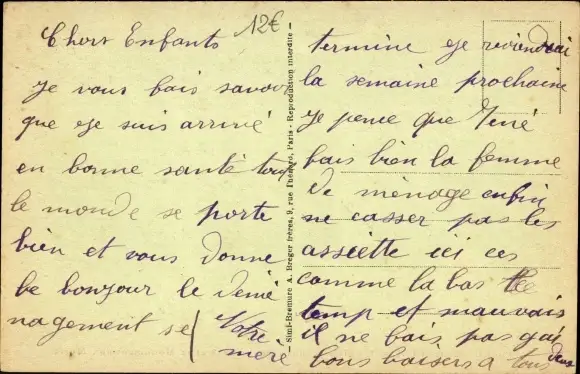 12€
Chers Enfants
Je vous fais savoir
que je suis arrivé
en bonne santé tous
le monde se porte
bien et vous donne
le bonjour le demé
nagement se
termine je reviendrai
la semaine prochaine
Je pence que Réné
fais bien la femme
de ménage enfin
ne casser pas les
assiette ici ces
comme la bas le
temp et mauvais
il ne fais pas gai
bons baisers a tous deux
Votre
meré
Simili-Bromure A. Breger frères, 9, rue Thénard, Paris - Reproduction interdite -